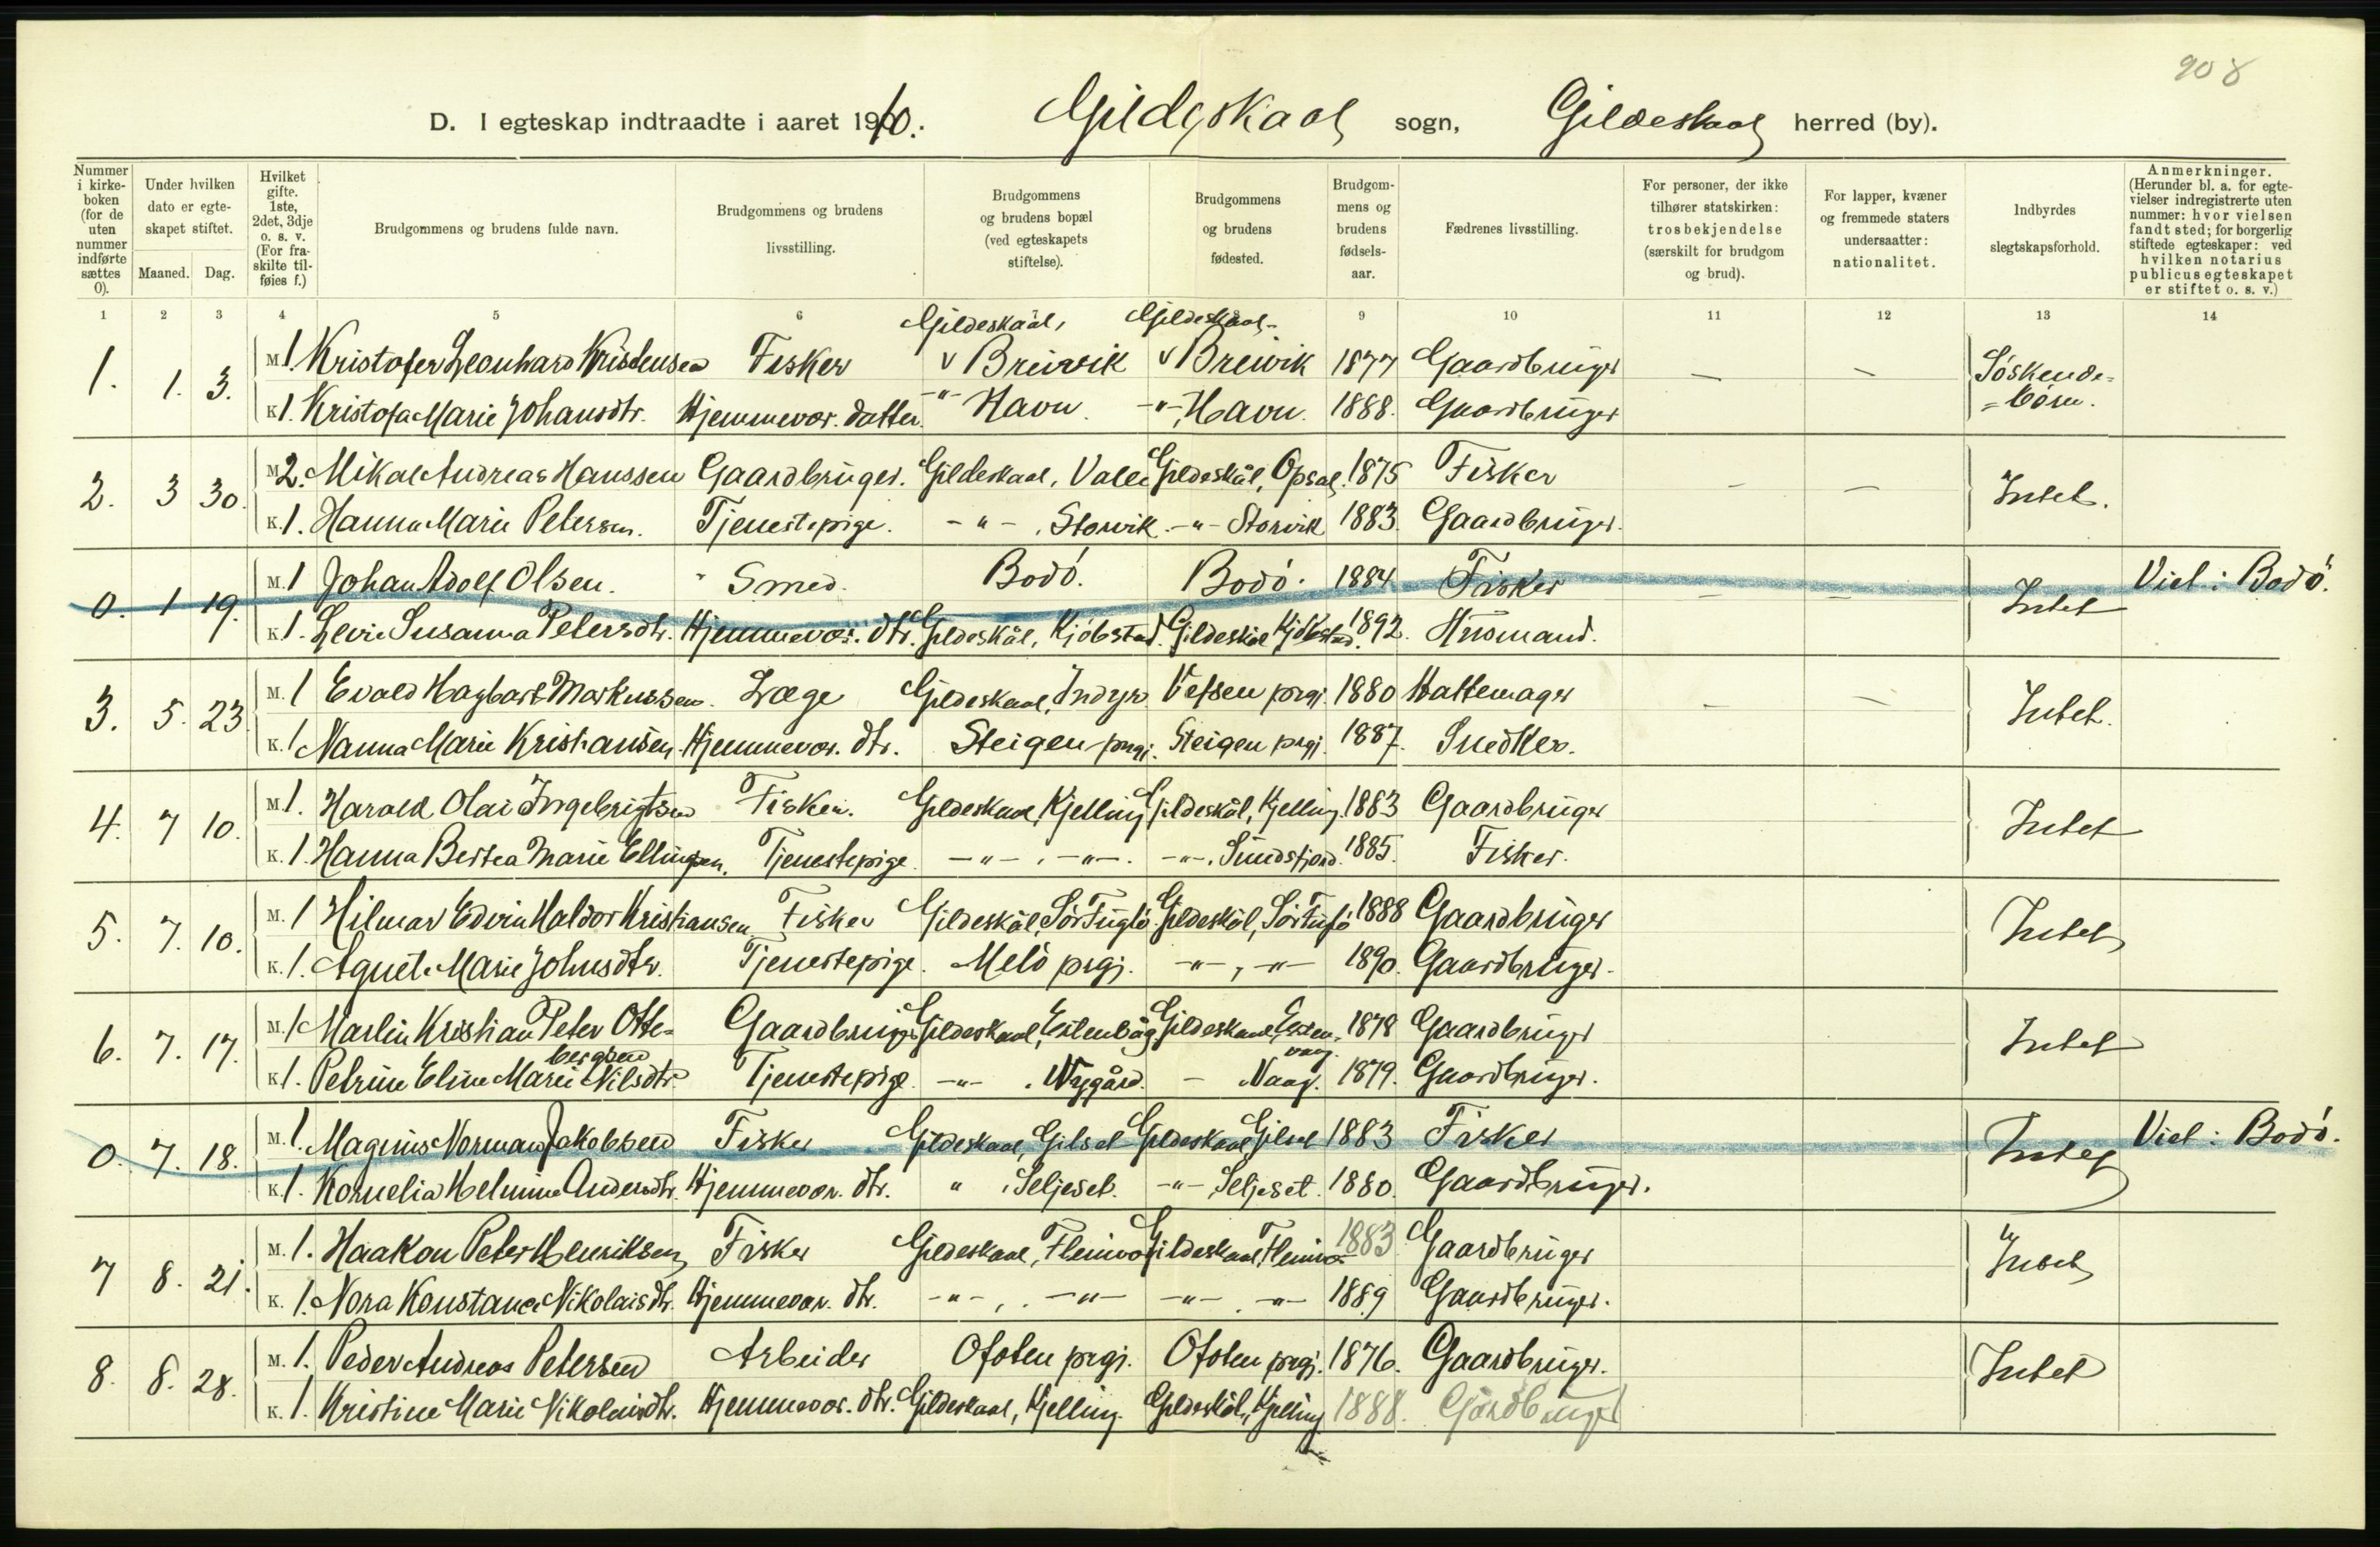 908
D. I egteskap indtraadte i aaret 1910. Gildeskaal sogn, Gildeskaal herred (by).
Nummer i kirke-boken (for de uten nummer indførte sættes 0).
Under hvilken dato er egte-skapet stiftet.
Maaned. Dag.
Hvilket gifte. 1ste, 2det, 3dje o. s. v. (For fra-skilte til-føies f.)
Brudgommens og brudens fulde navn.
Brudgommens og brudens livsstilling.
Brudgommens og brudens bopæl (ved egteskapets stiftelse).
Brudgommens og brudens fødested.
Brudgom-mens og brudens fødsels-aar.
Fædrenes livsstilling.
For personer, der ikke tilhører statskirken: trosbekjendelse (særskilt for brudgom og brud).
For lapper, kvæner og fremmede staters undersaatter: nationalitet.
Indbyrdes slegtskapsforhold.
Anmerkninger. (Herunder bl. a. for egte-vielser indregistrerte uten nummer: hvor vielsen fandt sted; for borgerlig stiftede egteskaper: ved hvilken notarius publicus egteskapet er stiftet o. s. v.)
1 2 3 4 5 6 9 10 11 12 13 14
Gildeskaal, Gildeskaal-
1. 1. 3. M 1. Kristofer Leonhard Kristensen Fisker v Breivik v Breivik 1877 Gaardbruger — — Søskende=
K 1. Kristofa Marie Johansdtr. Hjemmevær. datter. -"- Havn. -"- Havn. 1888. Gaardbruger =børn.
2. 3 30. M 2. Mikal Andreas Hanssen Gaardbruger. Gildeskaal, Valle Gildeskål, Opsal. 1875 Fisker — — Intet.
K. 1. Hanna Marie Petersen. Tjenestepige. -"-, Storvik. -"- Storvik 1883. Gaardbruger.
0. 1 19. M. 1 Johan Adolf Olsen. Smed. Bodö. Bodö. 1884 Fisker — — Intet Viet: Bodö.
K 1. Levie Susanna Petersdtr. Hjemmevær. dtr. Gildeskål, Kjöbstad. Gildeskål Kjöbstad. 1892. Husmand.
3. 5. 23 M. 1 Evald Hagbart Markussen. Læge Gildeskaal, Indyr Vefsen prgj. 1880 Hattemager — — Intet.
K. 1 Nanna Marie Kristiansen Hjemmevær. dtr. Steigen prgj. Steigen prgj. 1887. Snedker.
4. 7 10. M 1. Harald Olai Ingebrigtsen Fisker. Gildeskaal, Kjelling Gildeskål, Kjelling. 1883 Gaardbruger Intet
K. 1. Hanna Bertea Marie Ellingsen. Tjenestepige. -"-, -"-. -"-, Sundsfjord. 1885. Fisker.
5. 7. 10. M. 1 Hilmar Edvin Haldor Kristiansen Fisker Gildeskål, Sör Fuglö. Gildeskål, Sör Fuglö 1888 Gaardbruger Intet
K. 1. Agnete Marie Johnsdtr. Tjenestepige. Melö prgj. -"-, -"- 1890. Gaardbruger.
6. 7. 17. M. 1 Martin Kristian Peter Otte= Gaardbruger Gildeskaal, Esten- 1878 Gaardbruger Intet
bergsen vaag.
K 1. Petrine Eline Marie Nilsdtr. Tjenestepige -"-, Nygård. - Vaag. 1879. Gaardbruger.
0. 7. 18. M. 1. Magnus Norman Jakobsen Fisker Gildeskaal, Gilset Gildeskaal Gilset 1883 Fisker Intet Viet: Bodö.
K 1. Kornelia Helmine Andersdtr. Hjemmevær. dtr. " , Seljeset. -"- Seljeset. 1880. Gaardbruger.
7 8. 21. M. 1. Haakon Peter Henriksen Fisker Gildeskaal, Fleinvær Gildeskaal, Fleinvær 1883 Gaardbruger Intet
K. 1. Nora Konstance Nikolaisdtr. Hjemmevær. dtr. -"-, -"- -"-, -"- 1889 Gaardbruger.
8. 8. 28. M. 1. Peder Andreas Petersen Arbeider Ofoten prgj. Ofoten prgj. 1876. Gaardbruger. Intet
K. 1. Kristine Marie Nikolaisdtr. Hjemmevær. dtr. Gildeskaal, Kjelling. Gildeskål, Kjelling 1888. Gårdbruger